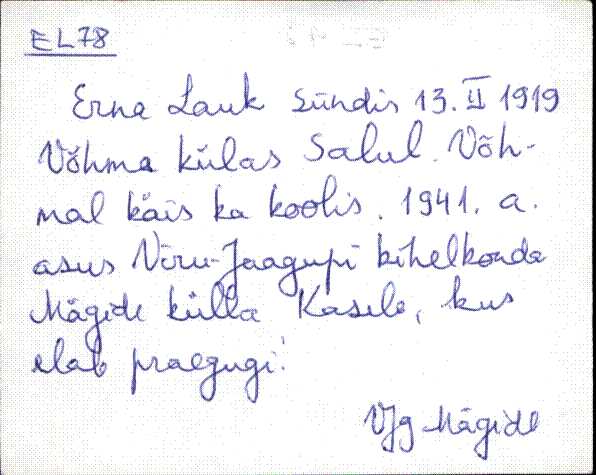 EL78
Erna Lauk sündis 13. II 1919
Võhma külas Salul. Võh-
mal käis ka koolis. 1941. a.
asus Viru-Jaagupi kihelkonda
Mägide külla Kasele, kus
elab praegugi.
VJg Mägide